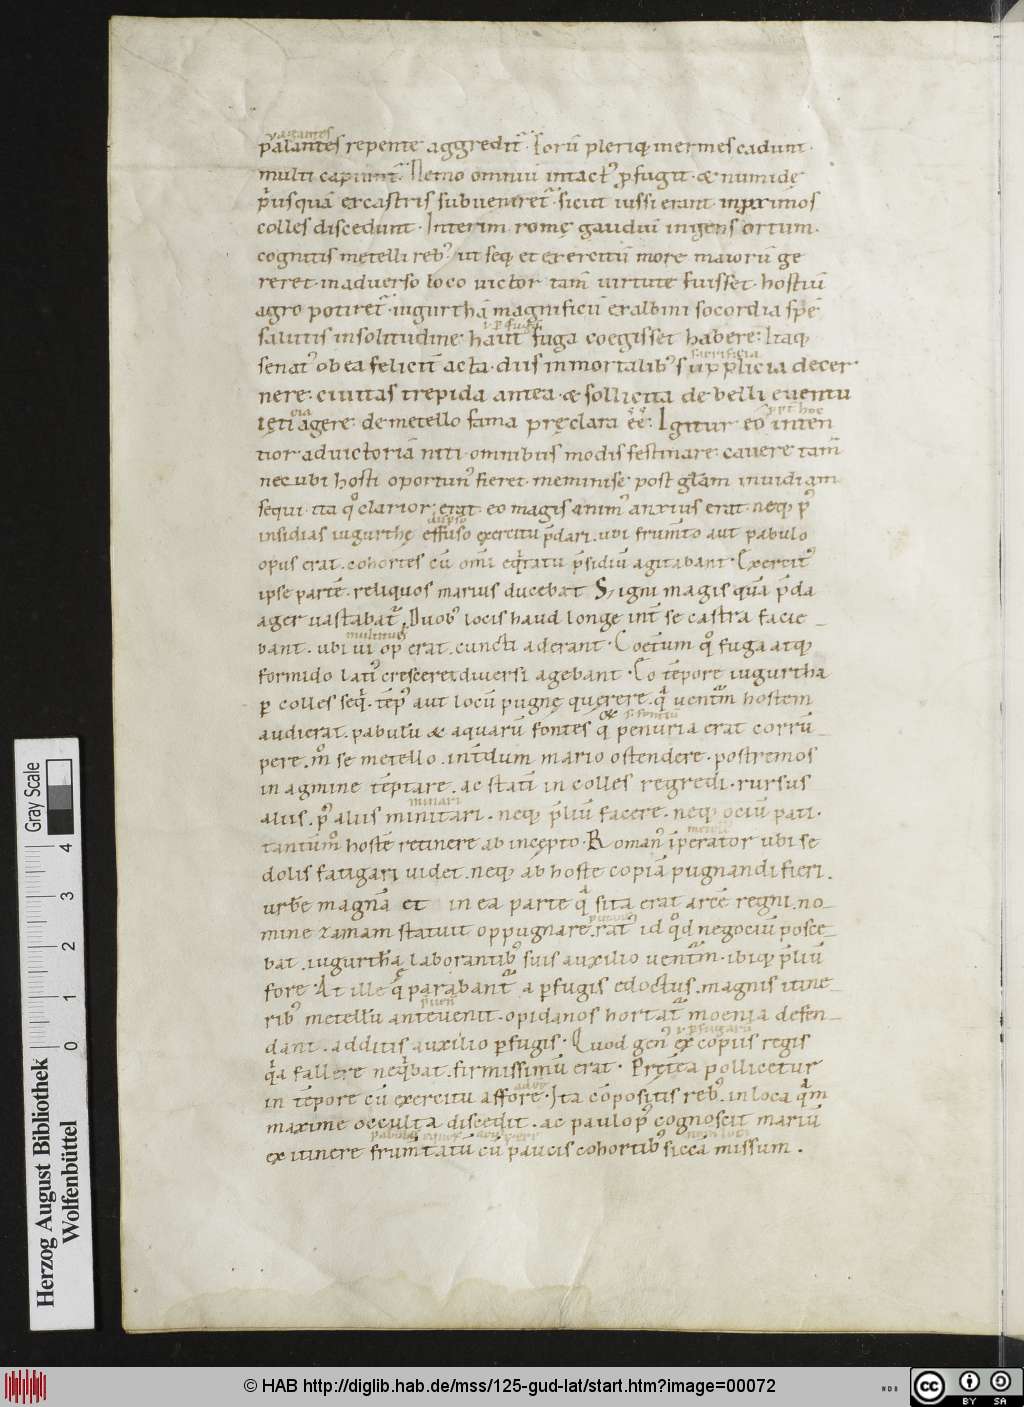 uagantes
p̄alantes repente aggredit᷑. Eorū pleriq; inermes cadunt.
multi capiunt᷑. Nemo omniū intact᷒ ꝓfugit. & numidę
p̄usquā ex castris subueniret᷑. sicut iussi erant. in ꝓximos
colles discedunt. Interim romę gaudiū ingens ortum.
cognitis metelli reb᷒. ut seq; et exercitū more maiorū ge
reret. in aduerso loco uictor tam̄ uirtute fuisset. hostiū
agro potiret᷑. iugurthā magnificū ex albini socordia spē
salutis in solitudine haut fuga coegisset habere: Itaq;
senat᷒ ob ea feliciť acta. diis inmortalib᷒ supplicia decer
sacrificia
nere: ciuitas trepida antea. & sollicita de belli euentu
lęti agere: de metello fama pręclara eē: Igitur eo inten
tior ad uictoriā niti. omnibus modis festinare: cauere tam̄
nec ubi hosti oportun᷒ fieret. meminise post gl̄am inuidiam
sequi. ita qͦ clarior erat. eo magis anim᷒ anxius erat. neq; p᷒
insidias iugurthę effuso exercitu p̄dari. ubi frum̄to aut pabulo
opus erat. cohortes cū om̄i eq̇tatu p̄sidiū agitabant. Exercit᷒
ipse partē. reliquos marius ducebat. S; igni magis quā p̄da
ager uastabat᷑. Duob᷒ locis haud longe int̄ se castra facie
multitudo
bant. ubi ui op᷒ erat. cuncti aderant. Coeterum qͦ fuga atq;
formido lati᷒ cresceret diuersi agebant. Eo tēpore iugurtha
ꝑ colles seq̇. tēp᷒ aut locū pugnę querere. qᷓ uentūm hostem
audierat. pabulū & aquarū fontes qͦꝝ penuria erat corrū
pere. mͦ se metello. int̄dum mario ostendere. postremos
in agmine tēptare. ac statī in colles regredi. rursus
minari
aliis. p᷒ aliis minitari. neq; p̄liū facere. neq; ociū pati.
tantūmͦ hostē retinere ab incepto. Roman᷒ īperator ubi se
dolis fatigari uidet. neq; ab hoste copiā pugnandi fieri.
urbē magnā et in ea parte qᷓ sita erat arcē regni. no
mine zamam statuit oppugnare. rat᷒ id qͦd negociū posce
bat. iugurthā laborantib᷒ suis auxilio uentūm. ibiq; p̄liū
fore. At ille qᷓ parabant᷑ a ꝑfugis edoctus. magnis itine
rib᷒ metellū anteuenit. opidanos hortat᷑ moenia defen
dant. additis auxilio ꝑfugis. Quod gen᷒ ex copiis regis
qᷓa fallere neq̇bat. firmissimū erat. Pręťea pollicetur
in tēpore cū exercitu affore. Ita cōpositis reb᷒. in loca qᷓm
maxime occulta discedit. ac paulo p᷒ cognoscit mariū
ex itinere frum̄tatū cū paucis cohortib᷒ sicca missum.
Gray Scale
4
3
2
1
0
Herzog August Bibliothek
Wolfenbüttel
© HAB http://diglib.hab.de/mss/125-gud-lat/start.htm?image=00072
cc BY SA